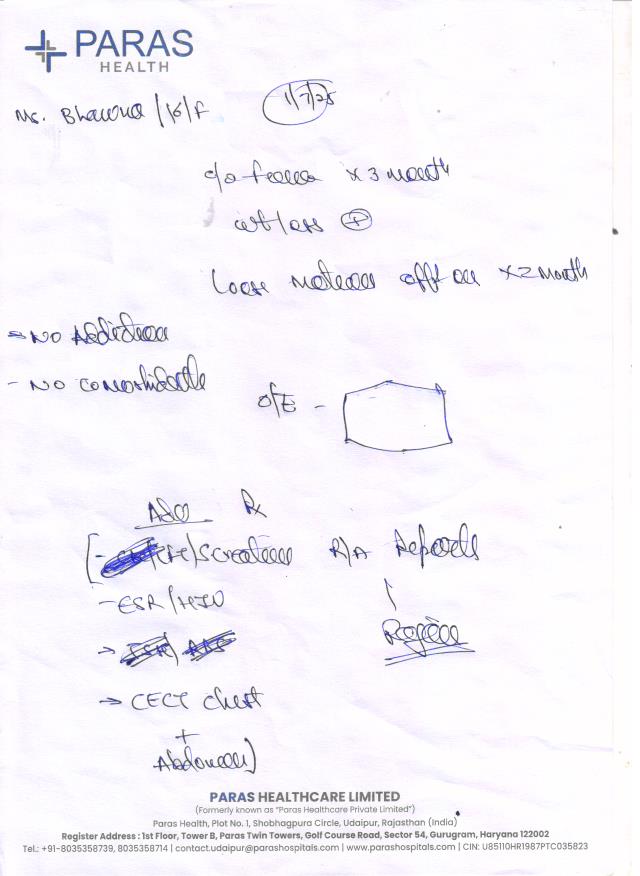 PARAS
HEALTH
Ms. Bhawna / 16 / F
1/7/25
c/o fever x 3 month
wt loss +
Loose motion off on x 2 month
- NO Addiction
- NO comorbidity
O/E -
Adv Rx
S. creatinine R/A Reports
- ESR / HIV
→ CECT chest
+
Abdomen
PARAS HEALTHCARE LIMITED
(Formerly known as "Paras Healthcare Private Limited")
Paras Health, Plot No. 1, Shobhagpura Circle, Udaipur, Rajasthan (India)
Register Address : 1st Floor, Tower B, Paras Twin Towers, Golf Course Road, Sector 54, Gurugram, Haryana 122002
Tel.: +91-8035358739, 8035358714 | contact.udaipur@parashospitals.com | www.parashospitals.com | CIN: U85110HR1987PTC035823